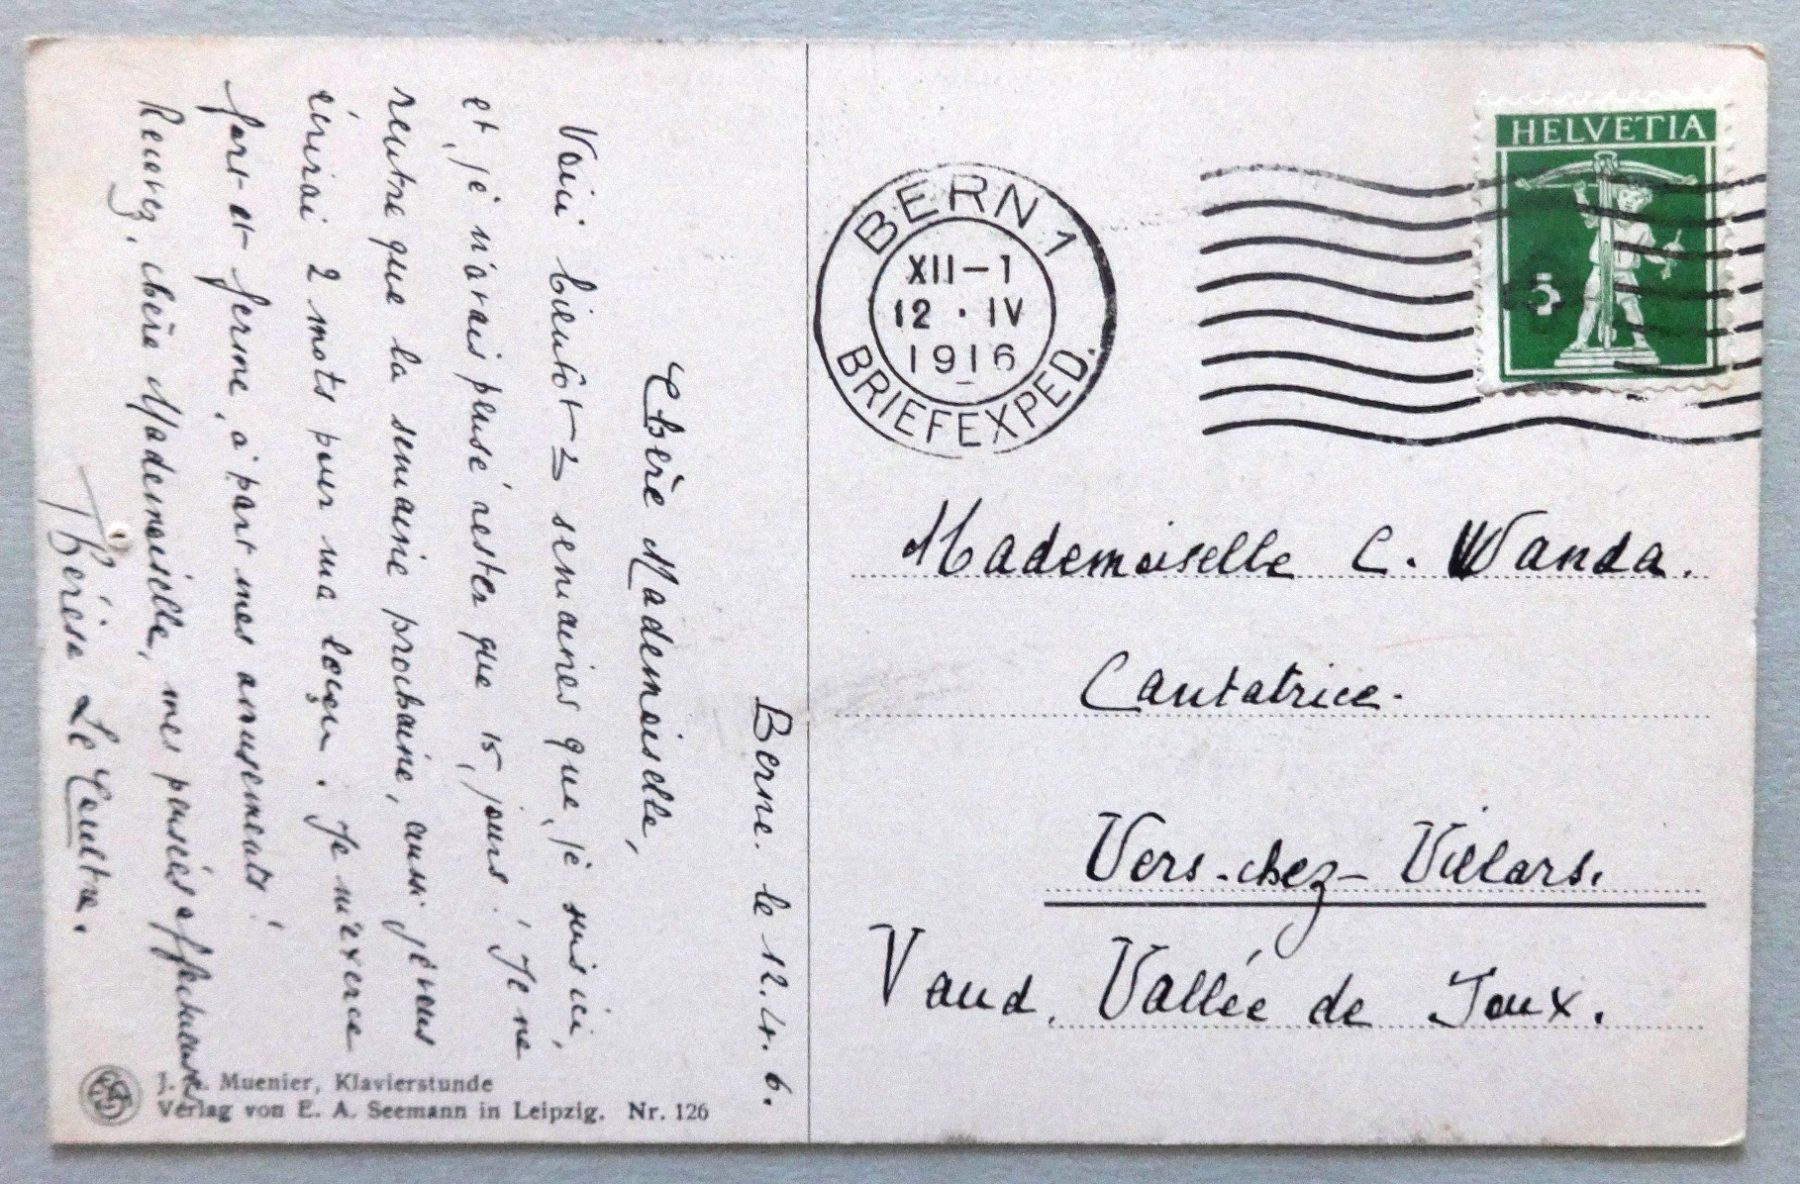 Berne. le 12.4.6.
Chère Mademoiselle,
Voici bientôt 3 semaines que je suis ici,
et je n'avais pensé rester que 15 jours! Je ne
rentre que la semaine prochaine, aussi je vous
écrirai 2 mots pour ma leçon. Je m'exerce
fort et ferme, à part mes amusements!
Recevez, chère Mademoiselle, mes pensées affectueuses
Thérèse Le Coultre.
J. A. Muenier, Klavierstunde
Verlag von E. A. Seemann in Leipzig. Nr. 126
BERN 1
XII-1
12 · IV
1916
BRIEFEXPED.
HELVETIA
5
Mademoiselle C. Wanda.
Cantatrice.
Vers-chez-Villars.
Vaud. Vallée de Joux.